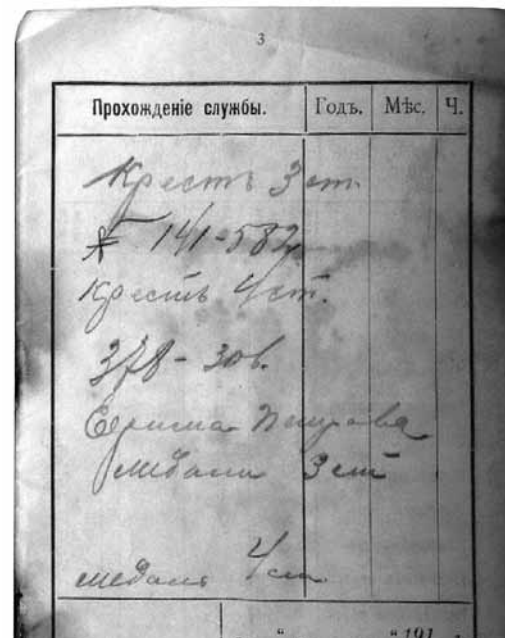 3
Прохожденіе службы. Годъ. Мѣс. Ч.
Крестъ 3 ст.
№ 141-582
Крестъ 4 ст.
378-306.
Петрова
медали 3 ст
медаль 4 ст
" " 191